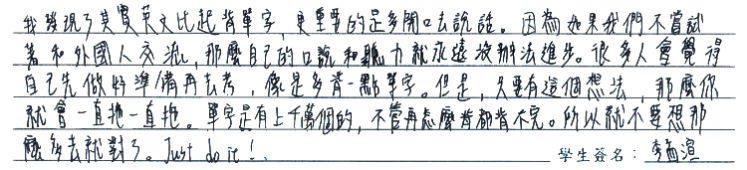 我發現了其實英文比起背單字，更重要的是多開口去說話。因為如果我們不嘗試
著和外國人交流，那麼自己的口說和聽力就永遠沒辦法進步。很多人會覺得
自己先做好準備再去考，像是多背一點單字。但是，只要有這個想法，那麼你
就會一直拖一直拖。單字是有上千萬個的，不管再怎麼背都背不完。所以就不要想那
麼多去就對了。Just do it！ 學生簽名：李